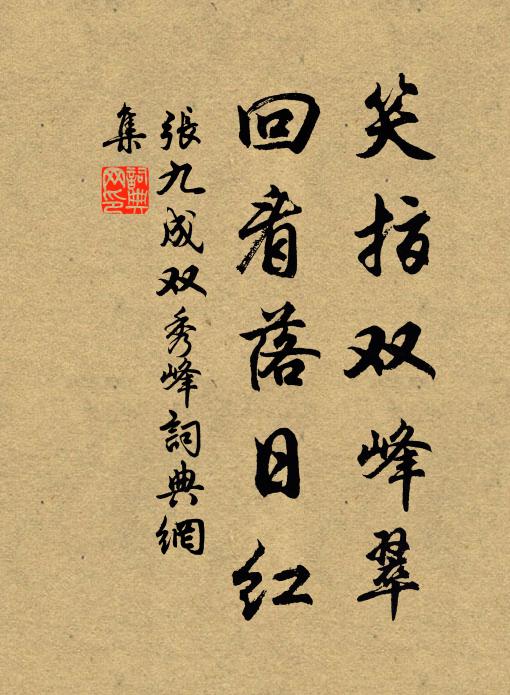 笑指双峰翠
回看落日红
張九成双秀峰詞典網
集
詞典网印